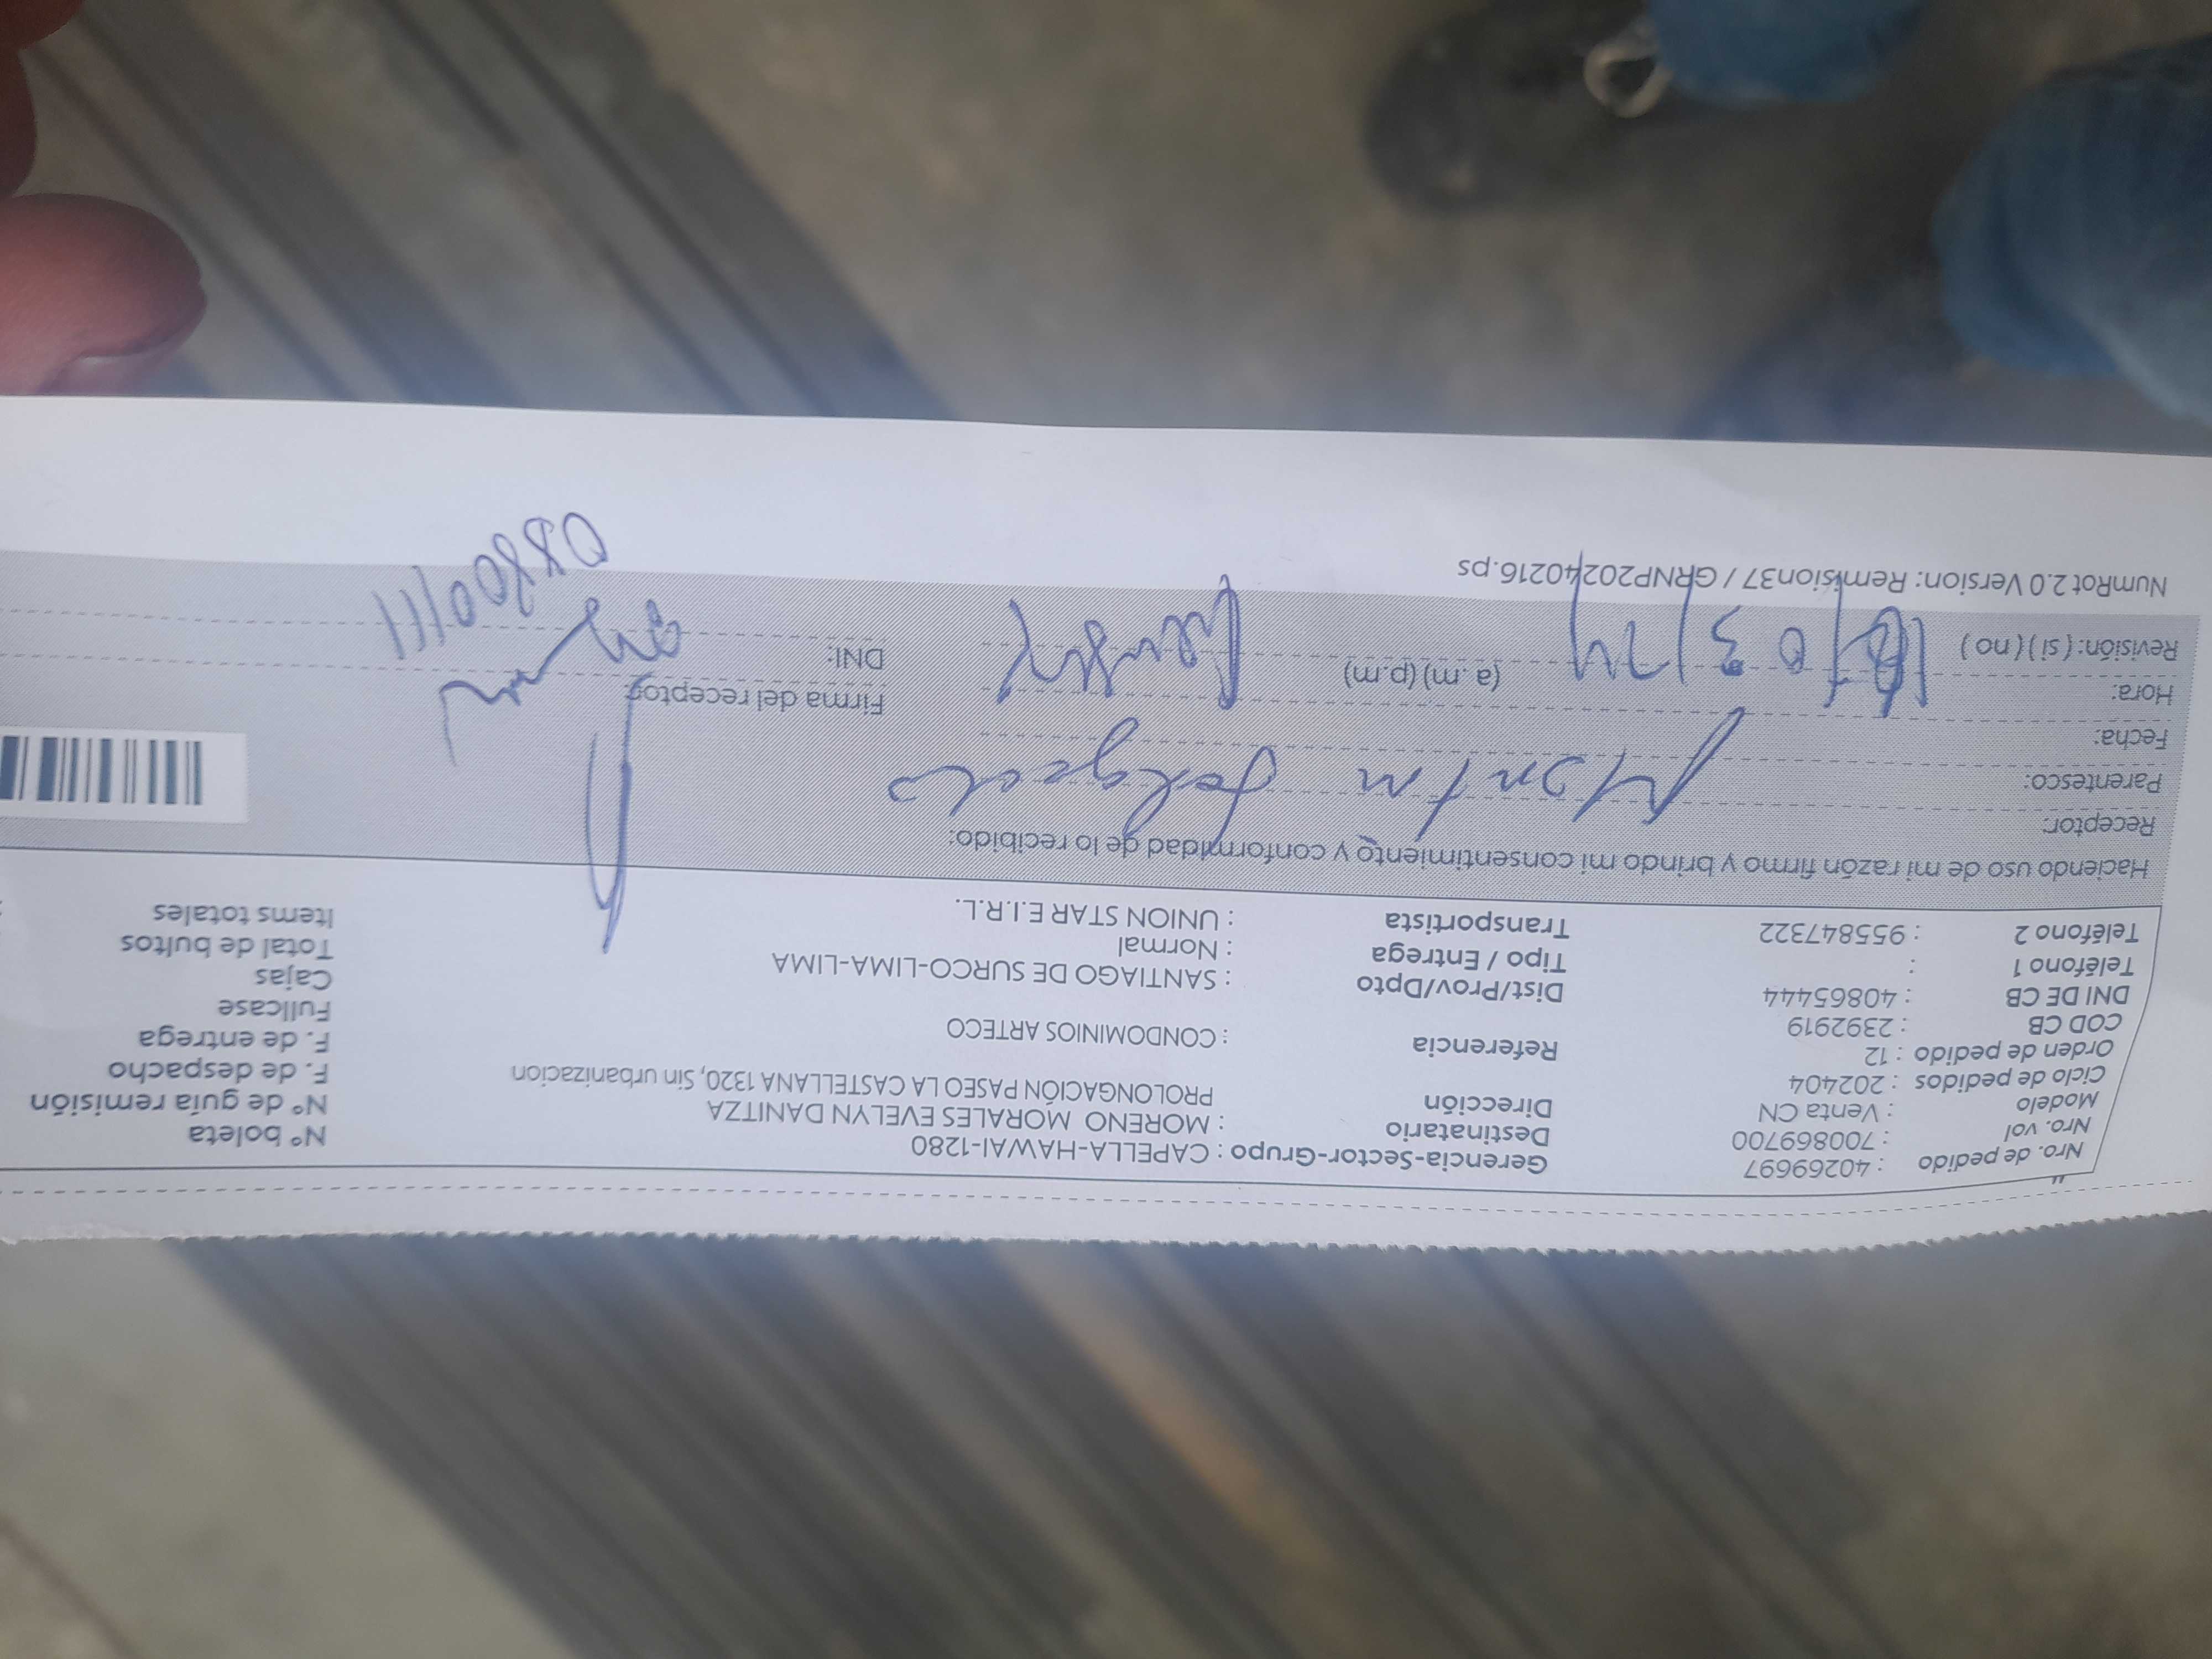 Nro. de pedido : 40269697 Gerencia-Sector-Grupo : CAPELLA-HAWAI-1280 N° boleta
Nro. vol : 700869700 Destinatario : MORENO MORALES EVELYN DANITZA N° de guía remisión
Modelo : Venta CN Dirección PROLONGACIÓN PASEO LA CASTELLANA 1320, Sin urbanizacion F. de despacho
Ciclo de pedidos : 202404 F. de entrega
Orden de pedido : 12 Referencia : CONDOMINIOS ARTECO Fullcase
COD CB : 2392919 Cajas
DNI DE CB : 40865444 Dist/Prov/Dpto : SANTIAGO DE SURCO-LIMA-LIMA Total de bultos
Teléfono 1 : Tipo / Entrega : Normal Items totales
Teléfono 2 : 955847322 Transportista : UNION STAR E.I.R.L.
Haciendo uso de mi razón firmo y brindo mi consentimiento y conformidad de lo recibido:
Receptor:
Parentesco:
Fecha:
Hora: (a.m) (p.m) Firma del receptor:
Revisión: ( si ) ( no ) DNI:
NumRot 2.0 Version: Remision37 / GRNP20240216.ps